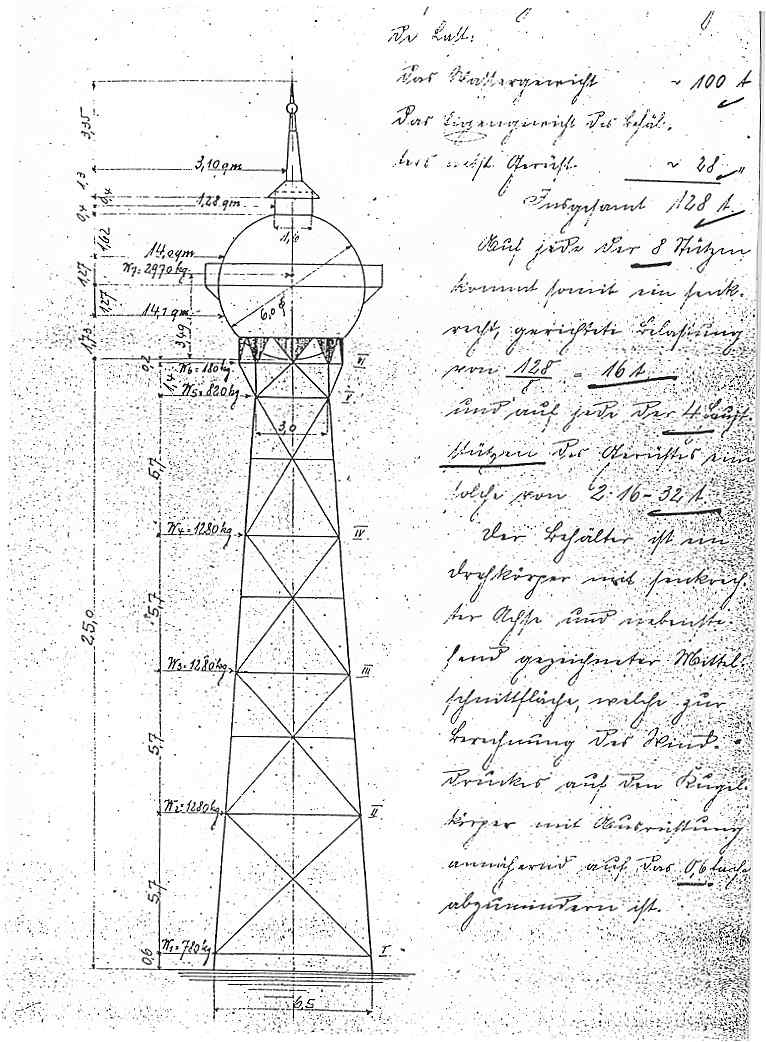 De Last:
Das Wassergewicht ~ 100 t
Das Eigengewicht des Behäl-
ters nebst Gerüst. ~ 28 "
Insgesamt 128 t
Auf jede der 8 Stützen
kommt somit ein senk-
recht, gerichtete Belastung
von 128/8 = 16 t
und auf jede der 4 Haupt-
stützen des Gerüstes eine
solche von 2·16 = 32 t.
Der Behälter ist ein
Drehkörper mit senkrech-
ter Achse und nebenste-
hend gezeichneter Mittel-
schnittfläche, welche zur
Berechnung des Wind-
druckes auf den Kugel-
körper mit Ausrüstung
annähernd auf das 0,6 fache
abzumindern ist.
3,35
3,10 qm
1,3
0,4
1,28 qm
0,4
1,62
14,0 qm
W7=2970 kg
1,27
1,27
14,1 qm
6,0
3,49
1,73
0,2
W6=180 kg
VI
1,4
W5=820 kg
V
3,0
5,7
W4=1280 kg
IV
5,7
25,0
W3=1280 kg
III
5,7
W2=1280 kg
II
5,7
W1=780 kg
I
0,6
6,5